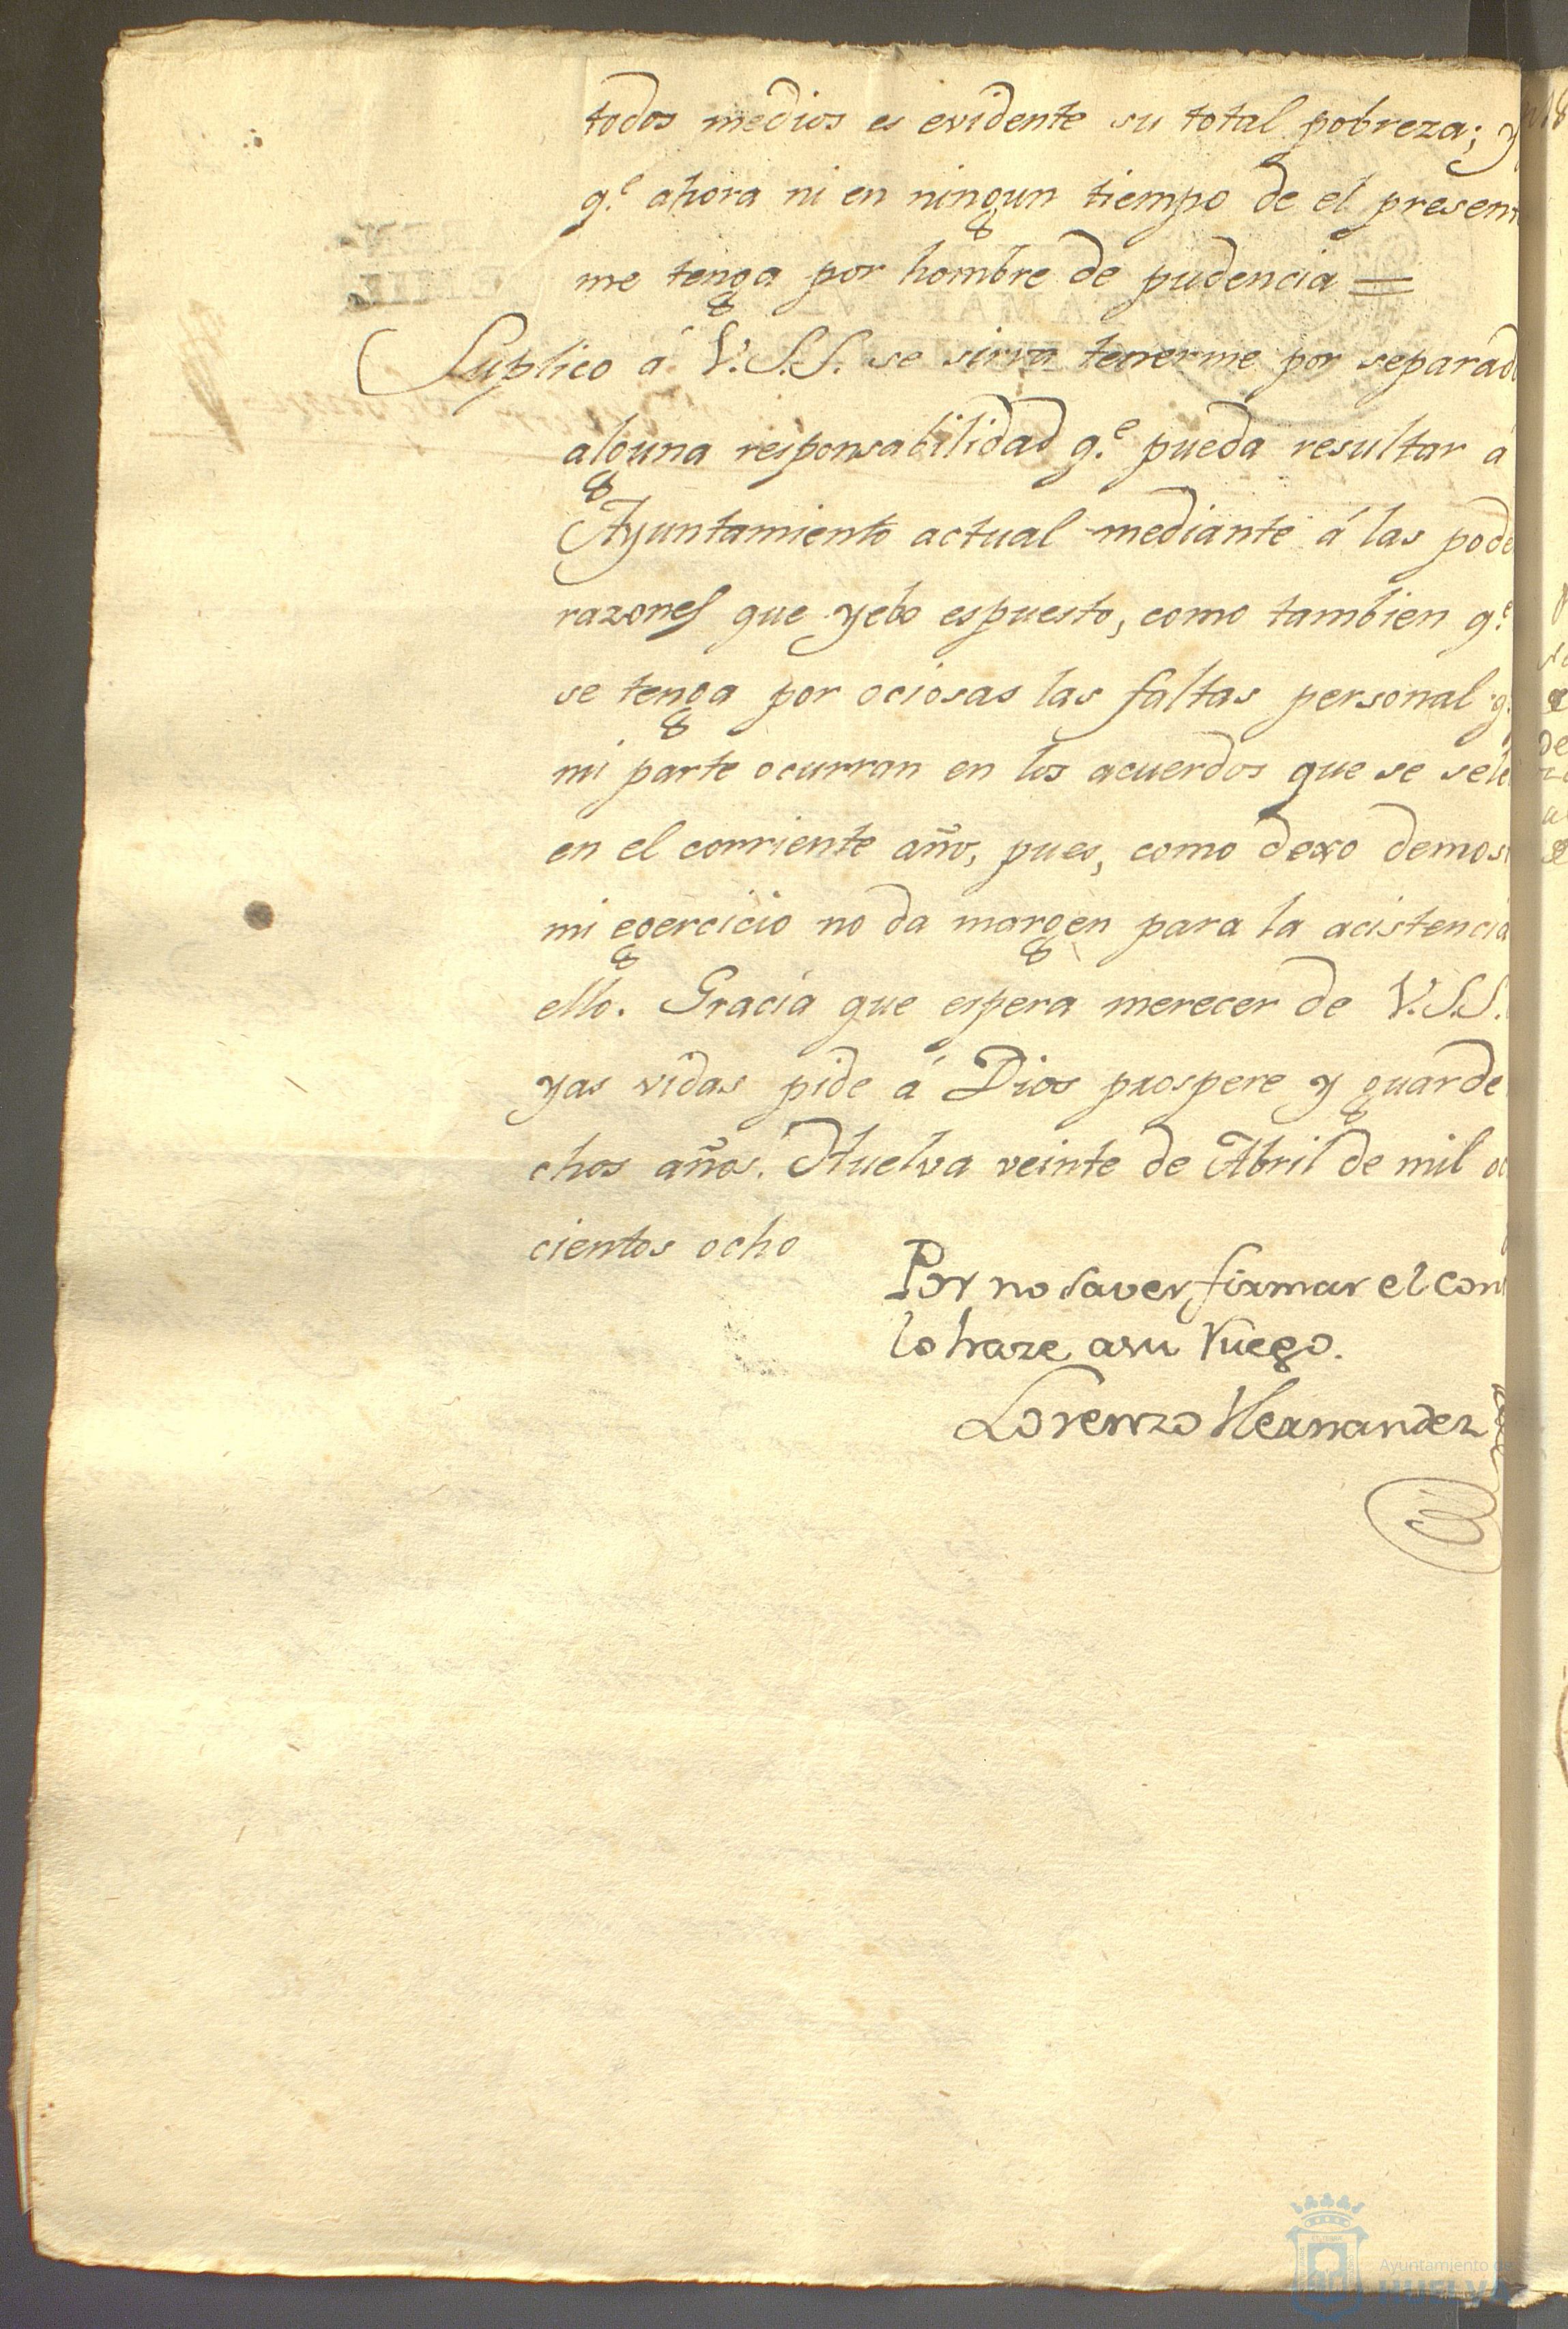 todos medios es evidente su total pobreza; y
q.e ahora ni en ningun tiempo de el presen
me tenga por hombre de pudencia =
Suplico á V.S.S. se sirva tenerme por separad
alguna responsabilidad q.e pueda resultar á
Ayuntamiento actual mediante á las pode
razones que yebo espuesto, como tambien q.e
se tenga por ociosas las faltas personal q.
mi parte ocurran en los acuerdos que se sele
en el corriente año, pues, como dexo demos
mi egercicio no da margen para la acistencia
ello. Gracia que espera merecer de V.S.S.
yas vidas pide á Dios prospere y guarde
chos años. Huelva veinte de Abril de mil o
cientos ocho
Por no saver firmar el con
lo haze asu Ruego.
Lorenzo Hernandez
Ayuntamiento de
HUELVA